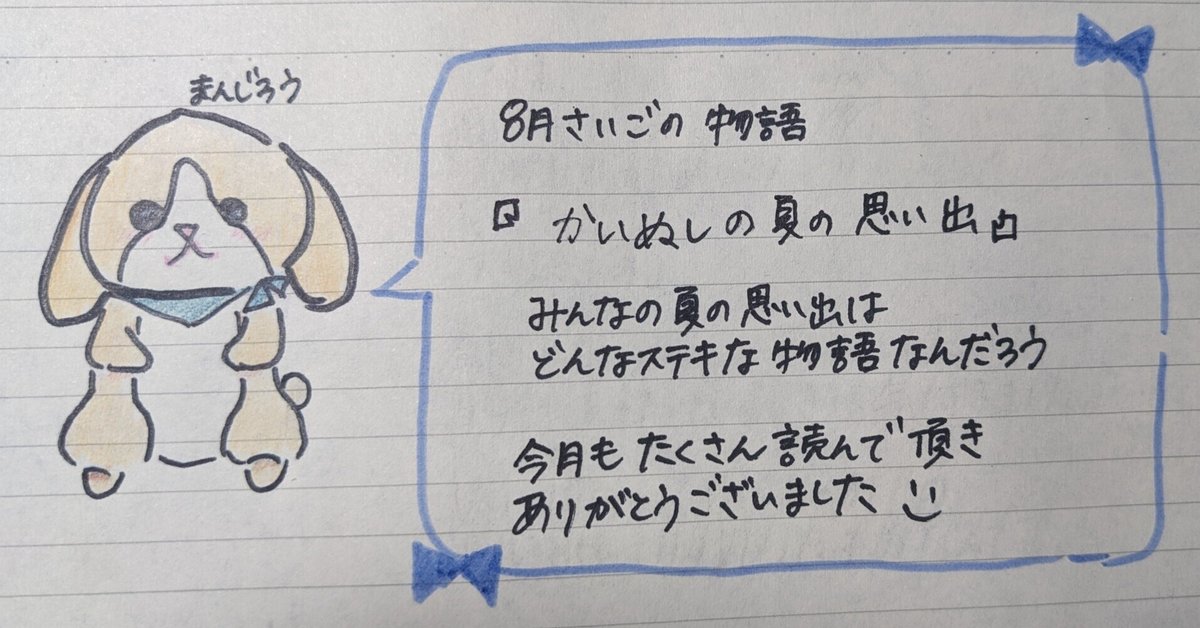 まんじろう
8月さいごの 物語
『 かいぬしの夏の思い出 』
みんなの夏の思い出は
どんなステキな物語なんだろう
今月も たくさん読んで頂き
ありがとうございました